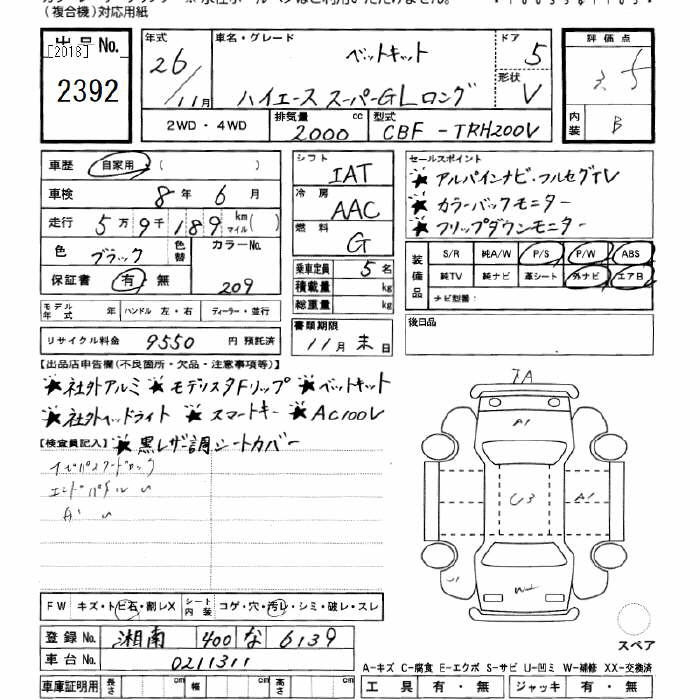 (複合機)対応用紙
出品No.
[2018]
2392
年式
26/11月
車名・グレード
ベットキット
ハイエース スーパーGLロング
ドア
5
形状
V
評価点
内装
B
2WD・4WD
排気量 2000 cc
型式 CBF-TRH200V
車歴 自家用 ( )
車検 8年 6月
走行 5万9千189 km マイル( )
色 ブラック 色替
カラーNo. 209
保証書 有・無
モデル年式 年 ハンドル 左・右 ディーラー・並行
リサイクル料金 9550 円 預託済
シフト IAT
冷房 AAC
燃料 G
乗車定員 5名
積載量 kg
総重量 kg
書類期限
11月末日
セールスポイント
★アルパインナビ・フルセグTV
★カラーバックモニター
★フリップダウンモニター
装備品
S/R 純A/W P/S P/W ABS
純TV 純ナビ 革シート 外ナビ エアB
ナビ型番:
後日品
[出品店申告欄(不良箇所・欠品・注意事項等)]
★社外アルミ ★モデリスタFリップ ★ベットキット
★社外ヘッドライト ★スマートキー ★AC100V
[検査員記入] ★黒レザー調シートカバー
A1
U3
A1
FW キズ・トビ石・割レX シート内装 コゲ・穴・汚レ・シミ・破レ・スレ
登録No. 湘南 400 な 6139
車台No. 0211311
車庫証明用 長さ cm 幅 cm 高さ cm
スペア
A-キズ C-腐食 E-エクボ S-サビ U-凹ミ W-補修 XX-交換済
工具 有・無 ジャッキ 有・無